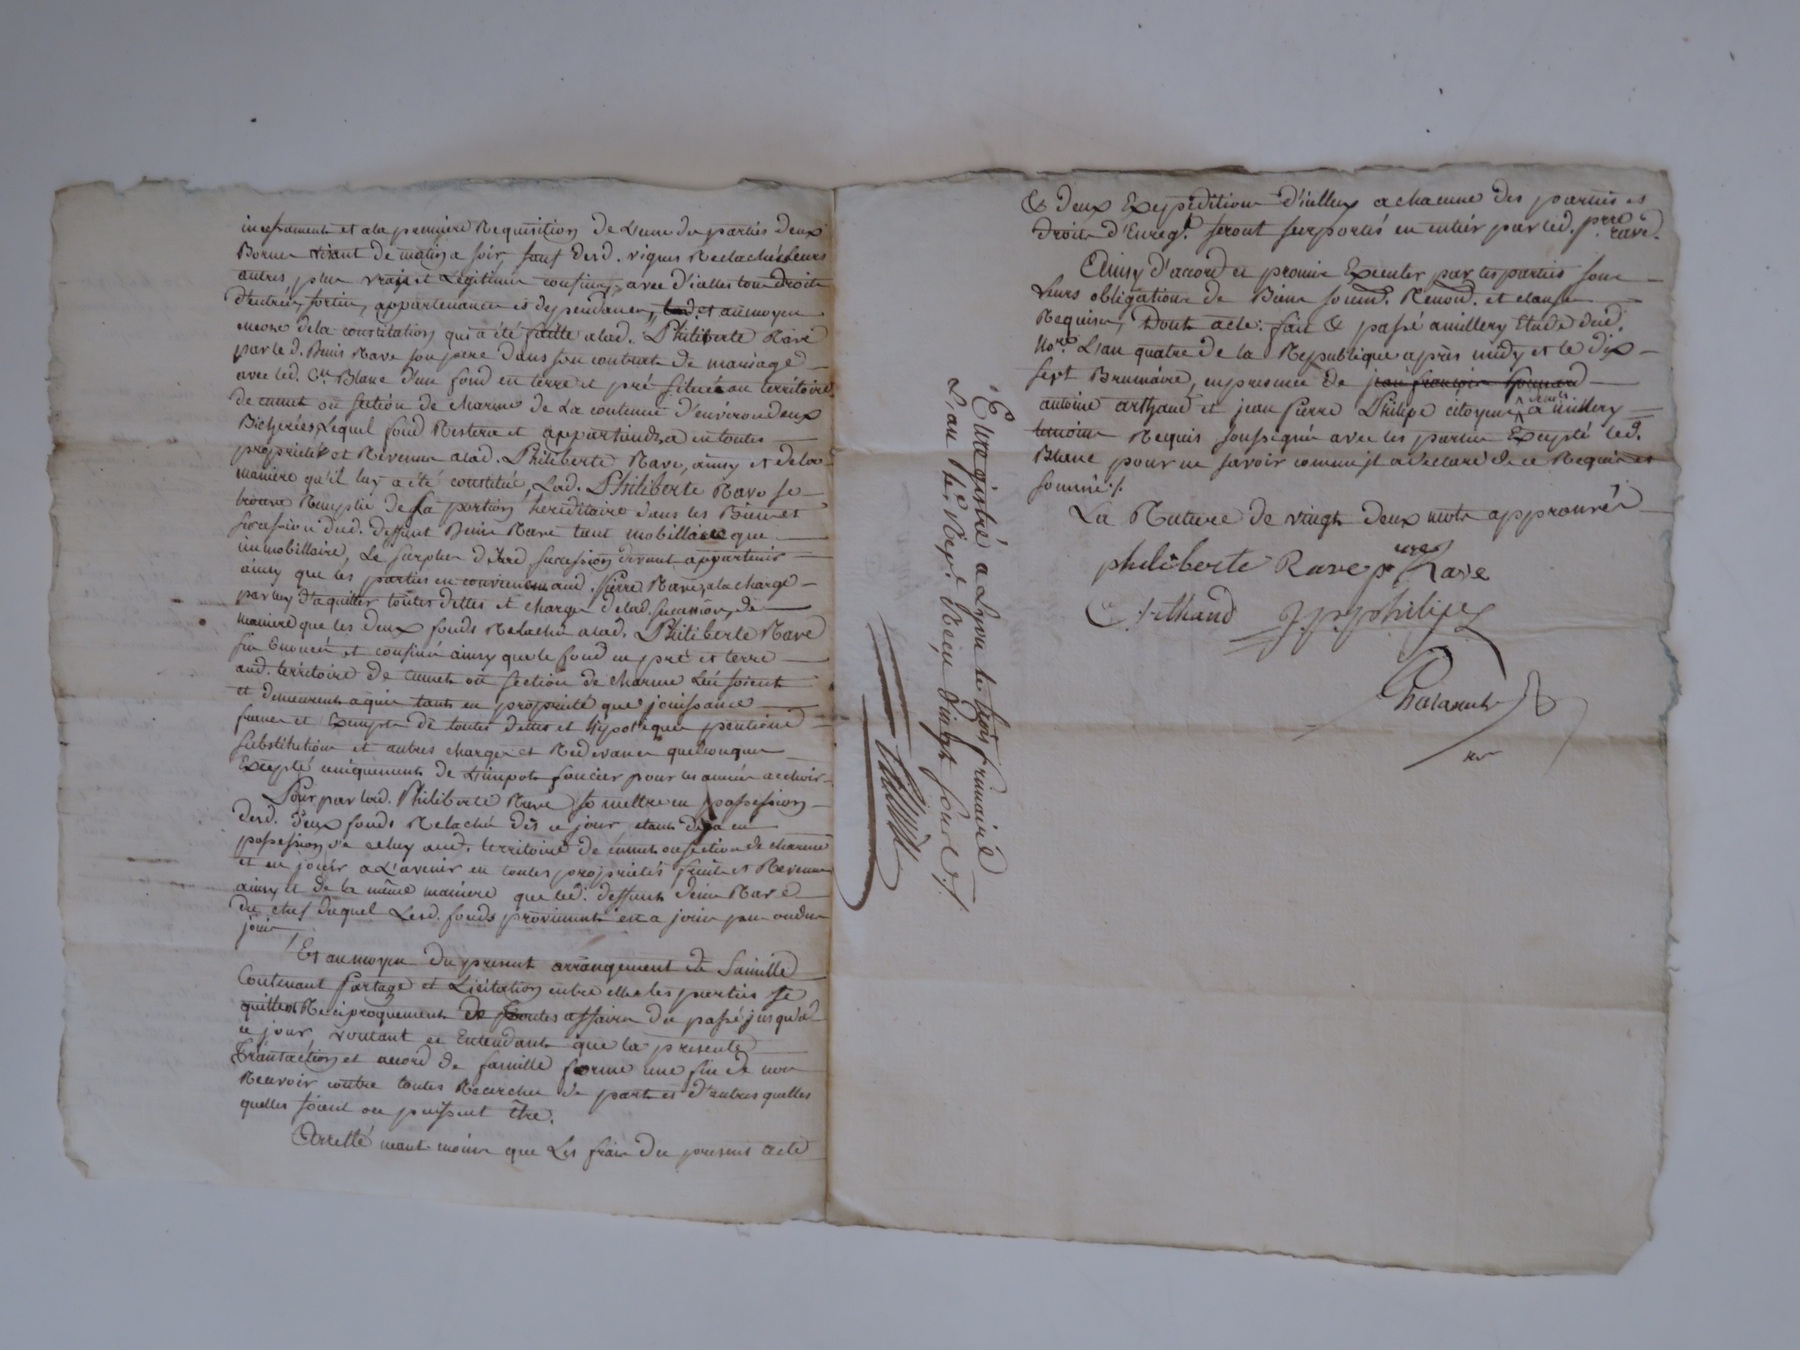 incessament et ala premiere Requisition de L'une des parties deux
Bornes tirant de matin a soir, sauf desd. vignes Relachés leurs
autres plus vrais et Légitimes confins, avec d'icelles tous droits
d'entrées, sorties, appartenances et dependances, et aumoyen
encore de la constitution qui a été faitte alad. Philiberte Rave
par led. Denis Rave son pere dans son contrat de mariage
avec led. Cn. Blanc d'un fond en terre et pré situé au territoire
de cumet ou section de charme de La contenue d'environ deux
Bicherées, Lequel fond Restera et appartiendra en toutes
propriétés et Revenus alad. Philiberte Rave, ainsy et de la
maniere qu'il luy a été constitué, Lad. Philiberte Rave se
trouve Remplie de sa portion héréditaire dans les Biens et
succession dud. deffunt Denis Rave tant mobilliaire que
immobilliaire, Le surplus de lad. succession devant appartenir
ainsy que les parties en conviennent aud. Pierre Rave, ala charge
par luy d'aquitter toutes dettes et charges delad. succession, de
maniere que les deux fonds Relachés alad. Philiberte Rave
sus Enoncés et confinés ainsy que le fond en pré et terre
aud. territoire de cumet ou section de charme Lui soient
et demeurent aquis tant en propriété que jouissance
franc et Exempts de toutes dettes et hypoteques pentions
substitutions et autres charges et Redevances quelconques
Excepté uniquement de L'impot foncier pour les années a echoir
Pour par lad. Philiberte Rave se mettre en possession
desd. deux fonds Relachés dès ce jour, etant deja en
possession de celuy aud. territoire de cumet ou section de charme
et en jouir a L'avenir en toutes propriétés fruits et Revenus
ainsy et de la même maniere que led. deffunt denis Rave
du chef duquel Lesd. fonds proviennent en a joui pu ou du
jouir
Et au moyen du present arrangement de famille
Contenant Partage et Licitation entre elles les parties se
quittent Reciproquement de toutes affaires du passé jusqu'a
ce jour, voulant et Entendant que la presente
Transaction et accord de famille forme une fin de non
Recevoir contre toutes Recerches de part et d'autres quelles
quelles soient ou puissent être.
Arretté neant moins que Les frais du present acte
& deux Expeditions d'icelluy a chacune des parties et
droits d'Enregt. seront supportés en entier par led. Prre rave.
Ainsy d'accord et promis Executer par les parties sous
Leurs obligations de Biens soumis. Renond. et clauses
Requises, Dont acte: fait & passé amillery Etude dud.
Nore. L'an quatre de la Republique après midy et le dix
sept Brumaire, en presence de jean francois
antoine arthaud et jean Pierre Philipe citoyens a millery
temoins Requis soussignés avec les parties Excepté led.
Blanc pour ne savoir comme il a declaré de ce Requis et
sommé./.
La Rature de vingt deux mots approuvée
philiberte Rave prre Rave
a. Arthaud j p philipe
Chatanut
Enregistré a Lyon le trois frimaire
L'an 4e. Rep. Reçu vingt sous ./.